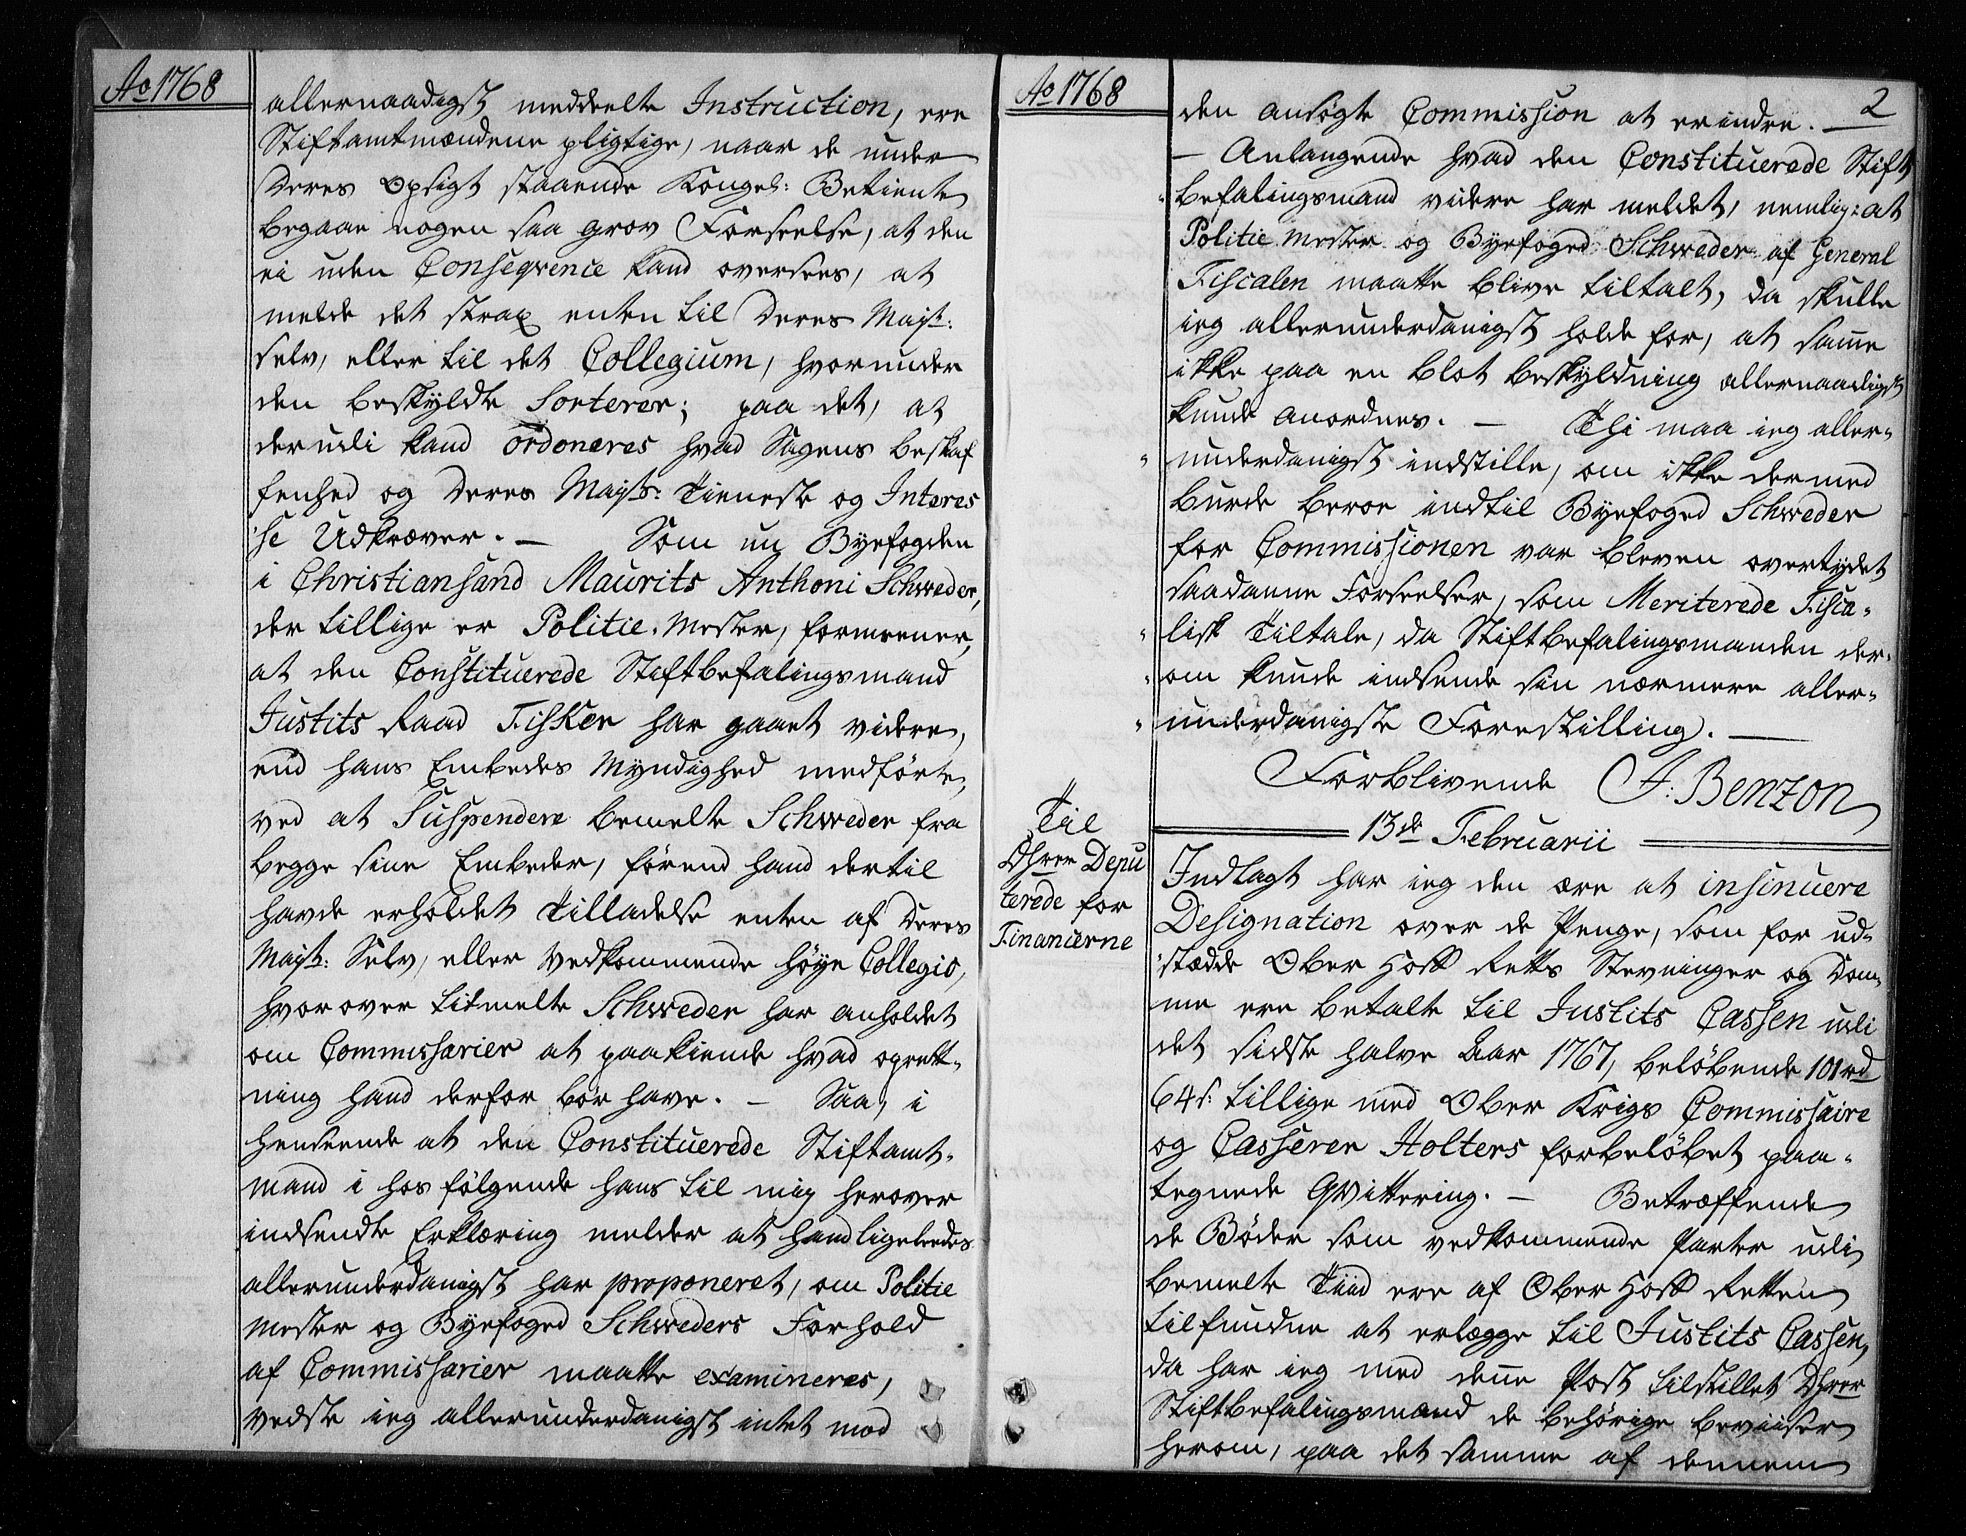 Ao 1768
allernaadigst meddeelte Instruction, ere
Stiftamtmændene pligtige, naar de under
Deres Opsigt staaende Kongel: Betiente
begaae nogen saa grov Forseelse, at den
ei uden Conseqvence kand oversees, at
melde det strax enten til Deres Mayst:
selv, eller til det Collegium, hvorunder
den beskyldte Sorterer; paa det, at
derudi kand ordoneres hvad Sagens beskaf
fenhed og Deres Mayst: Tieneste og Interes
se Udkræver. — Som nu Byefogden
i Christiansand Maurits Anthoni Schweder,
der tillige er Politie-Mester, formeener,
at den Constituerede Stiftbefalingsmand
Justits Raad Fisker har gaaet videre,
end hans Embedes Myndighed medførte,
ved at Suspendere bemelte Schweder fra
begge sine Embeder, førend hand dertil
havde erholdet Tilladelse enten af Deres
Mayst: Selv, eller Vedkommende høye Collegio,
hvorover titmelte Schweder har anholdet
om Commissarier at paakiende hvad oprett-
ning hand derfor bør have. — Saa, i
henseende at den Constituerede Stiftamt-
mand i hos følgende hans til mig herover
indsendte Erklæring melder at hand ligeleedes
allerunderdanigst har proponeret, om Politie
Mester og Byefoged Schweders Forhold
af Commissarier maatte examineres,
vedste ieg allerunderdanigst intet mod
Ao 1768
2
den ansøgte Commission at erindre. —
— Anlangende hvad den Constituerede Stift
befalingsmand videre har meldet, nemlig: at
Politie Mester og Byefoged Schweder af General
Fiscalen maatte blive tiltalt, da skulle
ieg allerunderdanigst holde for, at samme
ikke paa en blot beskyldning allernaadigst
kunde anordnes. — Thi maa ieg aller-
underdanigst indstille, om ikke dermed
burde beroe indtil Byefoged Schweder
for Commissionen var bleven overtydet
saadanne Forseelser, som Meriterede Fisca-
lisk Tiltale, da Stiftbefalingsmanden der-
om kunde indsende sin nærmere aller-
underdanigste Forestilling. —
Forblivende A: Benzon
13de Februarii
Til
Dhrer Depu
terede for
Financerne
Indlagt har ieg den ære at insinuere
Designation over de Penge, som for ud-
stædde Ober Hoff Retts Stevninger og Dom-
me ere betalte til Justits Cassen udi
det sidste halve Aar 1767, beløbende 101 rd
64 s: tillige med Ober Krigs Commissaire
og Casserer Holters forbeløbet paa-
tegnede Qvittering. — Betræffende
de Bøder som vedkommende Parter udi
bemelte Tiid ere af Ober Hoff Retten
tilfundne at erlægge til Justits Cassen,
da har ieg med denne Post tilstillet Dhrer
Stiftbefalingsmænd de behørige beviiser
herom, paa det samme af dennem